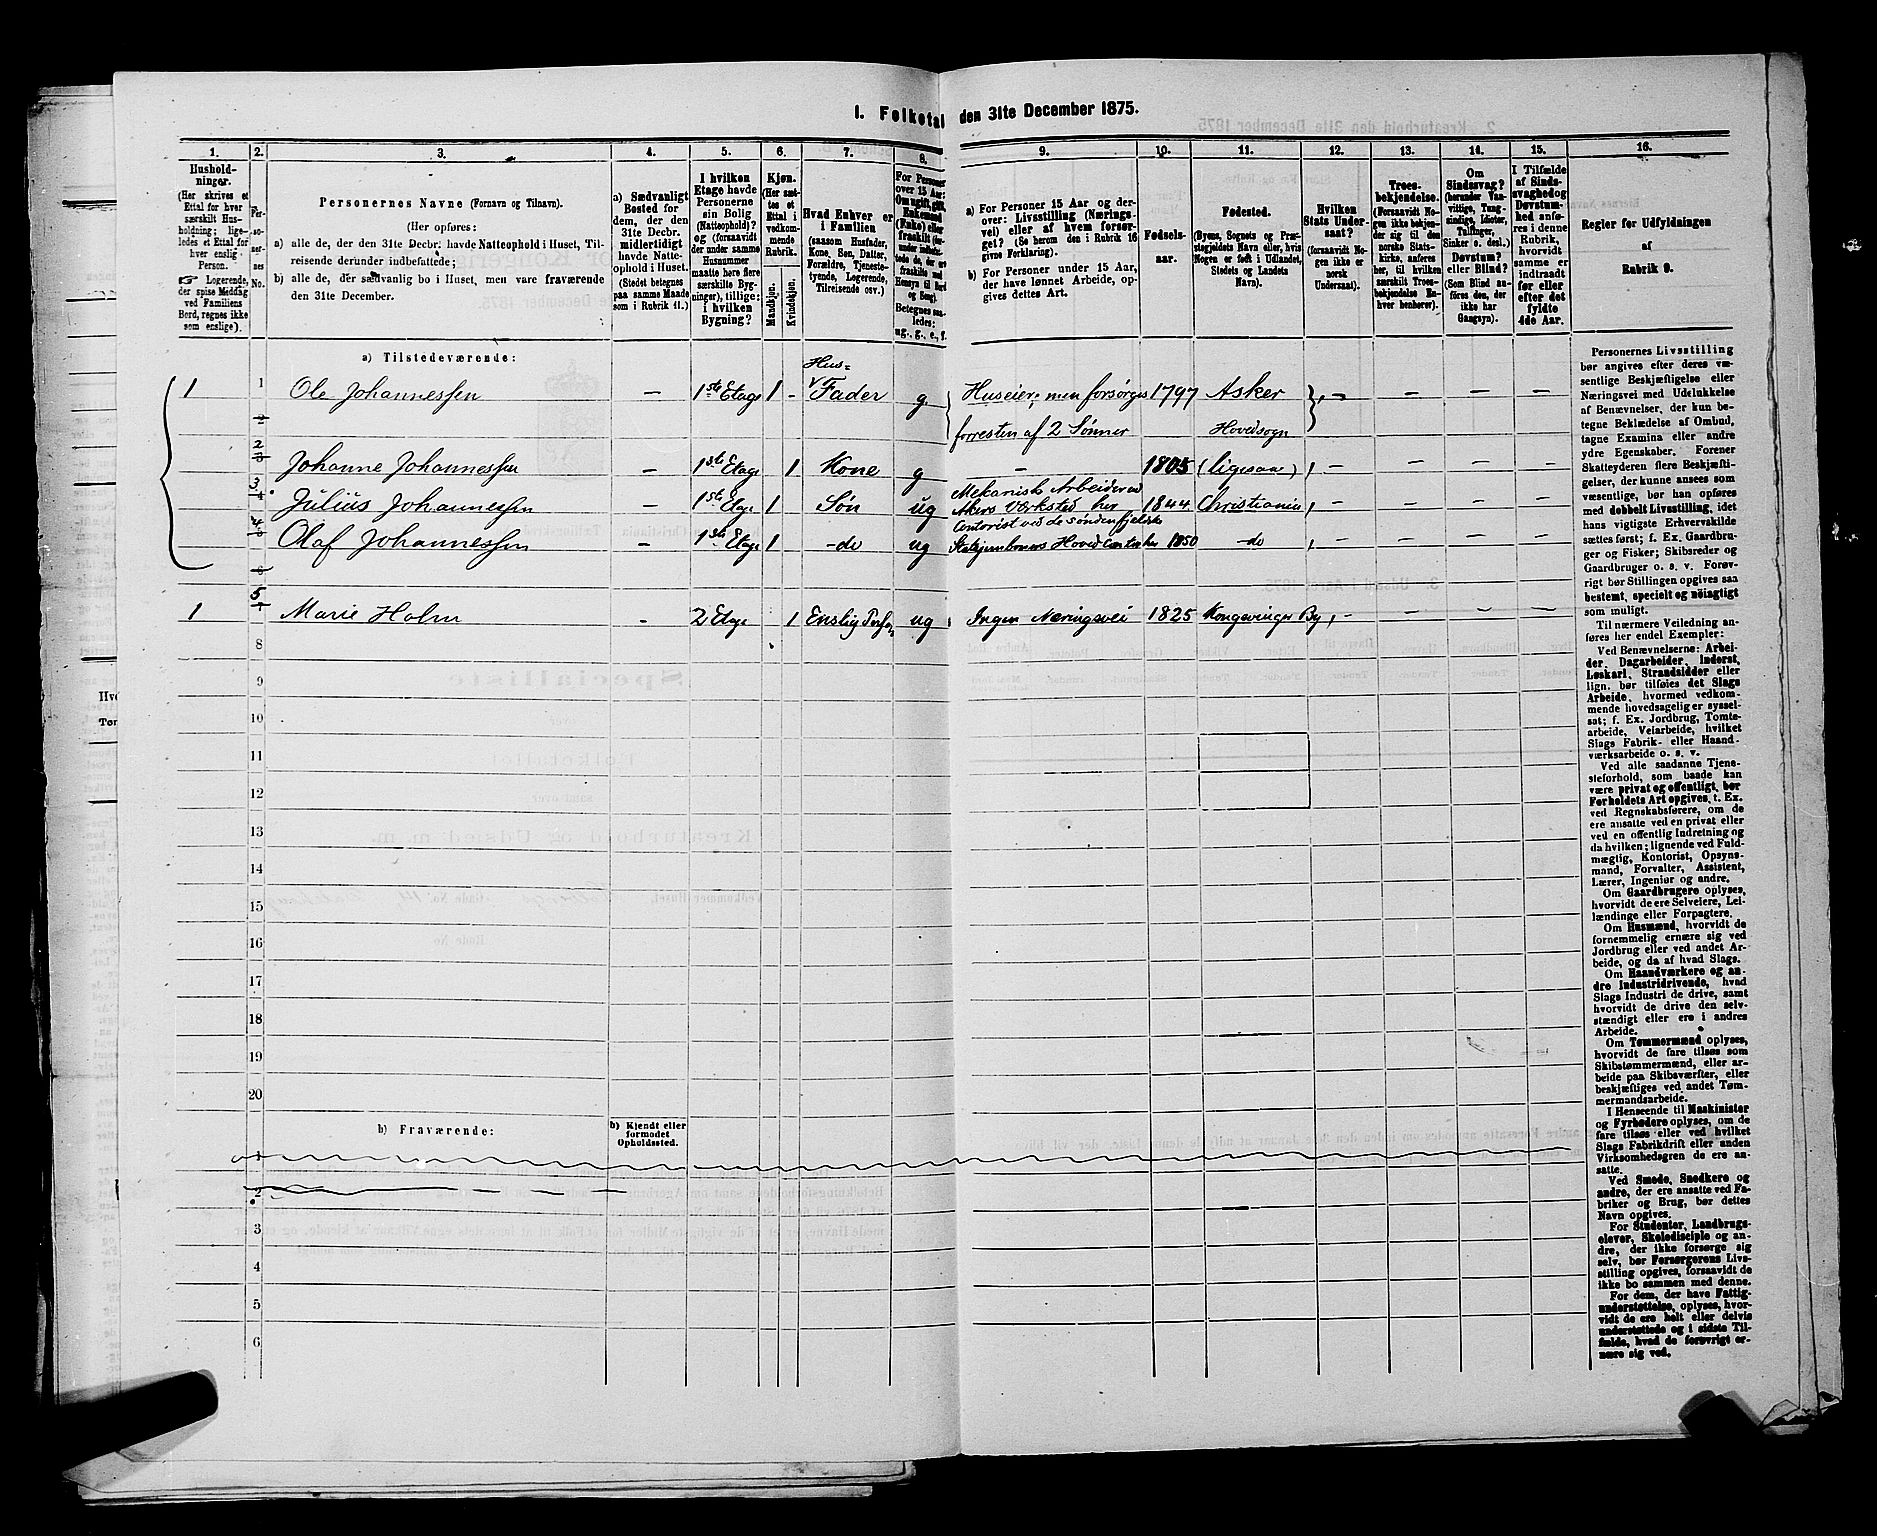 1. Folketal den 31te December 1875.
1. 2. 3. 4. 5. 6. 7. 8. 9. 10. 11. 12. 13. 14. 15. 16.
Hushold-
ninger.
(Her skrives et
Ettal for hver
særskilt Hus-
holdning; lige-
ledes et Ettal for
hver enslig
Person.
Logerende,
der spise Middag
ved Familiens
Bord, regnes ikke
som enslige).
Per-
so-
ner-
nes
No.
Personernes Navne (Fornavn og Tilnavn).
(Her opføres:
a) alle de, der den 31te Decbr. havde Natteophold i Huset, Til-
reisende derunder indbefattede;
b) alle de, der sædvanlig bo i Huset, men vare fraværende
den 31te December.
a) Sædvanligt
Bosted for
dem, der den
31te Decbr.
midlertidigt
havde Natte-
ophold i Huset.
(Stedet betegnes
paa samme Maade
som i Rubrik 11.)
I hvilken
Etage havde
Personerne
sin Bolig
(Natteophold)?
og (forsaavidt
der under samme
Husnummer
maatte høre flere
særskilte Byg-
ninger), tillige:
i hvilken
Bygning?
Kjøn.
(Her sæt-
tes et
Ettal i
vedkom-
mende
Rubrik.
Mandkjøn.
Kvindekjøn.
Hvad Enhver er
i Familien
(saasom Husfader,
Kone, Søn, Datter,
Forældre, Tjeneste-
tyende, Logerende,
Tilreisende osv.)
For Personer
over 15 Aar:
Om ugift, gift,
Enkemand
(Enke) eller
fraskilt
Betegnes saa-
ledes:
ug., g., e., f.
a) For Personer 15 Aar og der-
over: Livsstilling (Nærings-
vei) eller af hvem forsør-
get? (Se herom den i Rubrik 16
givne Forklaring).
b) For Personer under 15 Aar,
der have lønnet Arbeide, op-
gives dettes Art.
Fødsels-
aar.
Fødested.
(Byens, Sognets og Præ-
stegjeldets Navn eller, hvis
Nogen er født i Udlandet,
Stedets og Landets
Navn).
Hvilken
Stats Under-
saat?
(forsaavidt No-
gen ikke er
norsk
Undersaat).
Troes-
bekjendelse.
(Forsaavidt No-
gen ikke bekjen-
der sig til den
norske Stats-
kirke, anføres
her, til hvilken
særskilt Troes-
bekjendelse En-
hver henhører).
Om
Sindssvag?
(herunder Van-
vittige, Tung-
sindige, Idioter,
Sinker o. desl.)
Døvstum?
eller Blind?
(Som Blind an-
føres den, der
ikke har
Gangsyn).
I Tilfælde
af Sinds-
svaghed og
Døvstum-
hed anfø-
res i denne
Rubrik,
hvorvidt
samme er
indtraadt
før eller
efter det
fyldte
4de Aar.
Regler for Udfyldningen
af
Rubrik 9.
a) Tilstedeværende:
1 1 Ole Johannessen — 1ste Etage 1 - Hus= Fader g. Huseier, men forsørges 1797 Asker — — — —
forresten af 2 Sønner Hovedsogn
2 Johanne Johannessen — 1ste Etage 1 Kone g — 1805 (ligesaa) — — — —
3 Julius Johannessen — 1ste Etage 1 Søn ug Mekanisk Arbeider ved
Akers Værksted her 1844 Christiania — — — —
4 Olaf Johannessen — 1ste Etage 1 -do ug Contorist ved de søndenfjelske
Statsjernbaners Hovedcontor her 1850 -do — — — —
1 5 Marie Holm - 2 Etage 1 Enslig Person ug Ingen Næringsvei 1825 Kongsvinger By — — — —
8
9
10
11
12
13
14
15
16
17
18
19
20
b) Fraværende:
b) Kjendt eller
formodet
Opholdsted.
1
2
3
4
5
6
Personernes Livsstilling
bør angives efter deres væ-
sentlige Beskjæftigelse eller
Næringsvei med Udelukkelse
af Benævnelser, der kun be-
tegne Beklædelse af Ombud,
tagne Examina eller andre
ydre Egenskaber. Forener
Skatteyderen flere Beskjæfti-
gelser, der kunne ansees som
væsentlige, bør han opføres
med dobbelt Livsstilling, idet
hans vigtigste Erhvervskilde
sættes først; f. Ex. Gaardbru-
ger og Fisker; Skibsreder og
Gaardbruger o. s. v. Forøv-
rigt bør Stillingen opgives saa
bestemt, specielt og nöiagtigt
som muligt.
Til nærmere Veiledning an-
føres her endel Exempler:
Ved Benævnelserne: Arbei-
der, Dagarbeider, Inderst,
Løskarl, Strandsidder eller
lign. bør tilføies det Slags
Arbeide, hvormed vedkom-
mende hovedsagelig er syssel-
sat; f. Ex. Jordbrug, Tomte-
arbeide, Veiarbeide, hvilket
Slags Fabrik- eller Haand-
værksarbeide o. s. v.
Ved alle saadanne Tjene-
steforhold, som baade kan
være privat og offentligt, bør
Forholdets Art opgives, f. Ex.
ved Regnskabsførere, om de
ere ansatte ved en privat eller
ved en offentlig Indretning og
da hvilken; lignende ved Fuld-
mægtig, Kontorist, Opsyns-
mand, Forvalter, Assistent,
Lærer, Ingeniør og andre.
Om Gaardbrugere oplyses,
hvorvidt de ere Selveiere, Lei-
lændinge eller Forpagtere.
Om Husmænd, hvorvidt de
fornemmelig ernære sig ved
Jordbrug eller ved andet Ar-
beide, og da af hvad Slags.
Om Haandværkere og an-
dre Industridrivende, hvad
Slags Industri de drive, samt
hvorvidt de drive den selv-
stændigt eller ere i andres
Arbeide.
Om Tømmermænd oplyses,
hvorvidt de fare tilsøs som
Skibstømmermænd, eller ar-
beide paa Skibsværfter, eller
beskjæftiges ved andet Tøm-
mermandsarbeide.
I Henseende til Maskinister
og Fyrbødere oplyses, om de
fare tilsøs eller ved hvilket
Slags Fabrikdrift eller anden
Virksomhedsgren de ere an-
satte.
Ved Smede, Snedkere og
andre, der ere ansatte ved Fa-
briker og Brug, bør dettes
Navn opgives.
For Studenter, Landbrugs-
elever, Skoledisciple og an-
dre, der ikke forsørge sig
selv, bør Forsørgerens Livs-
stilling opgives, forsaavidt de
ikke bo sammen med denne.
For dem, der have Fattig-
understøttelse, oplyses, hvor-
vidt de ere helt eller delvis
understøttede og i sidste Til-
fælde, hvad de forøvrigt er-
nære sig ved.